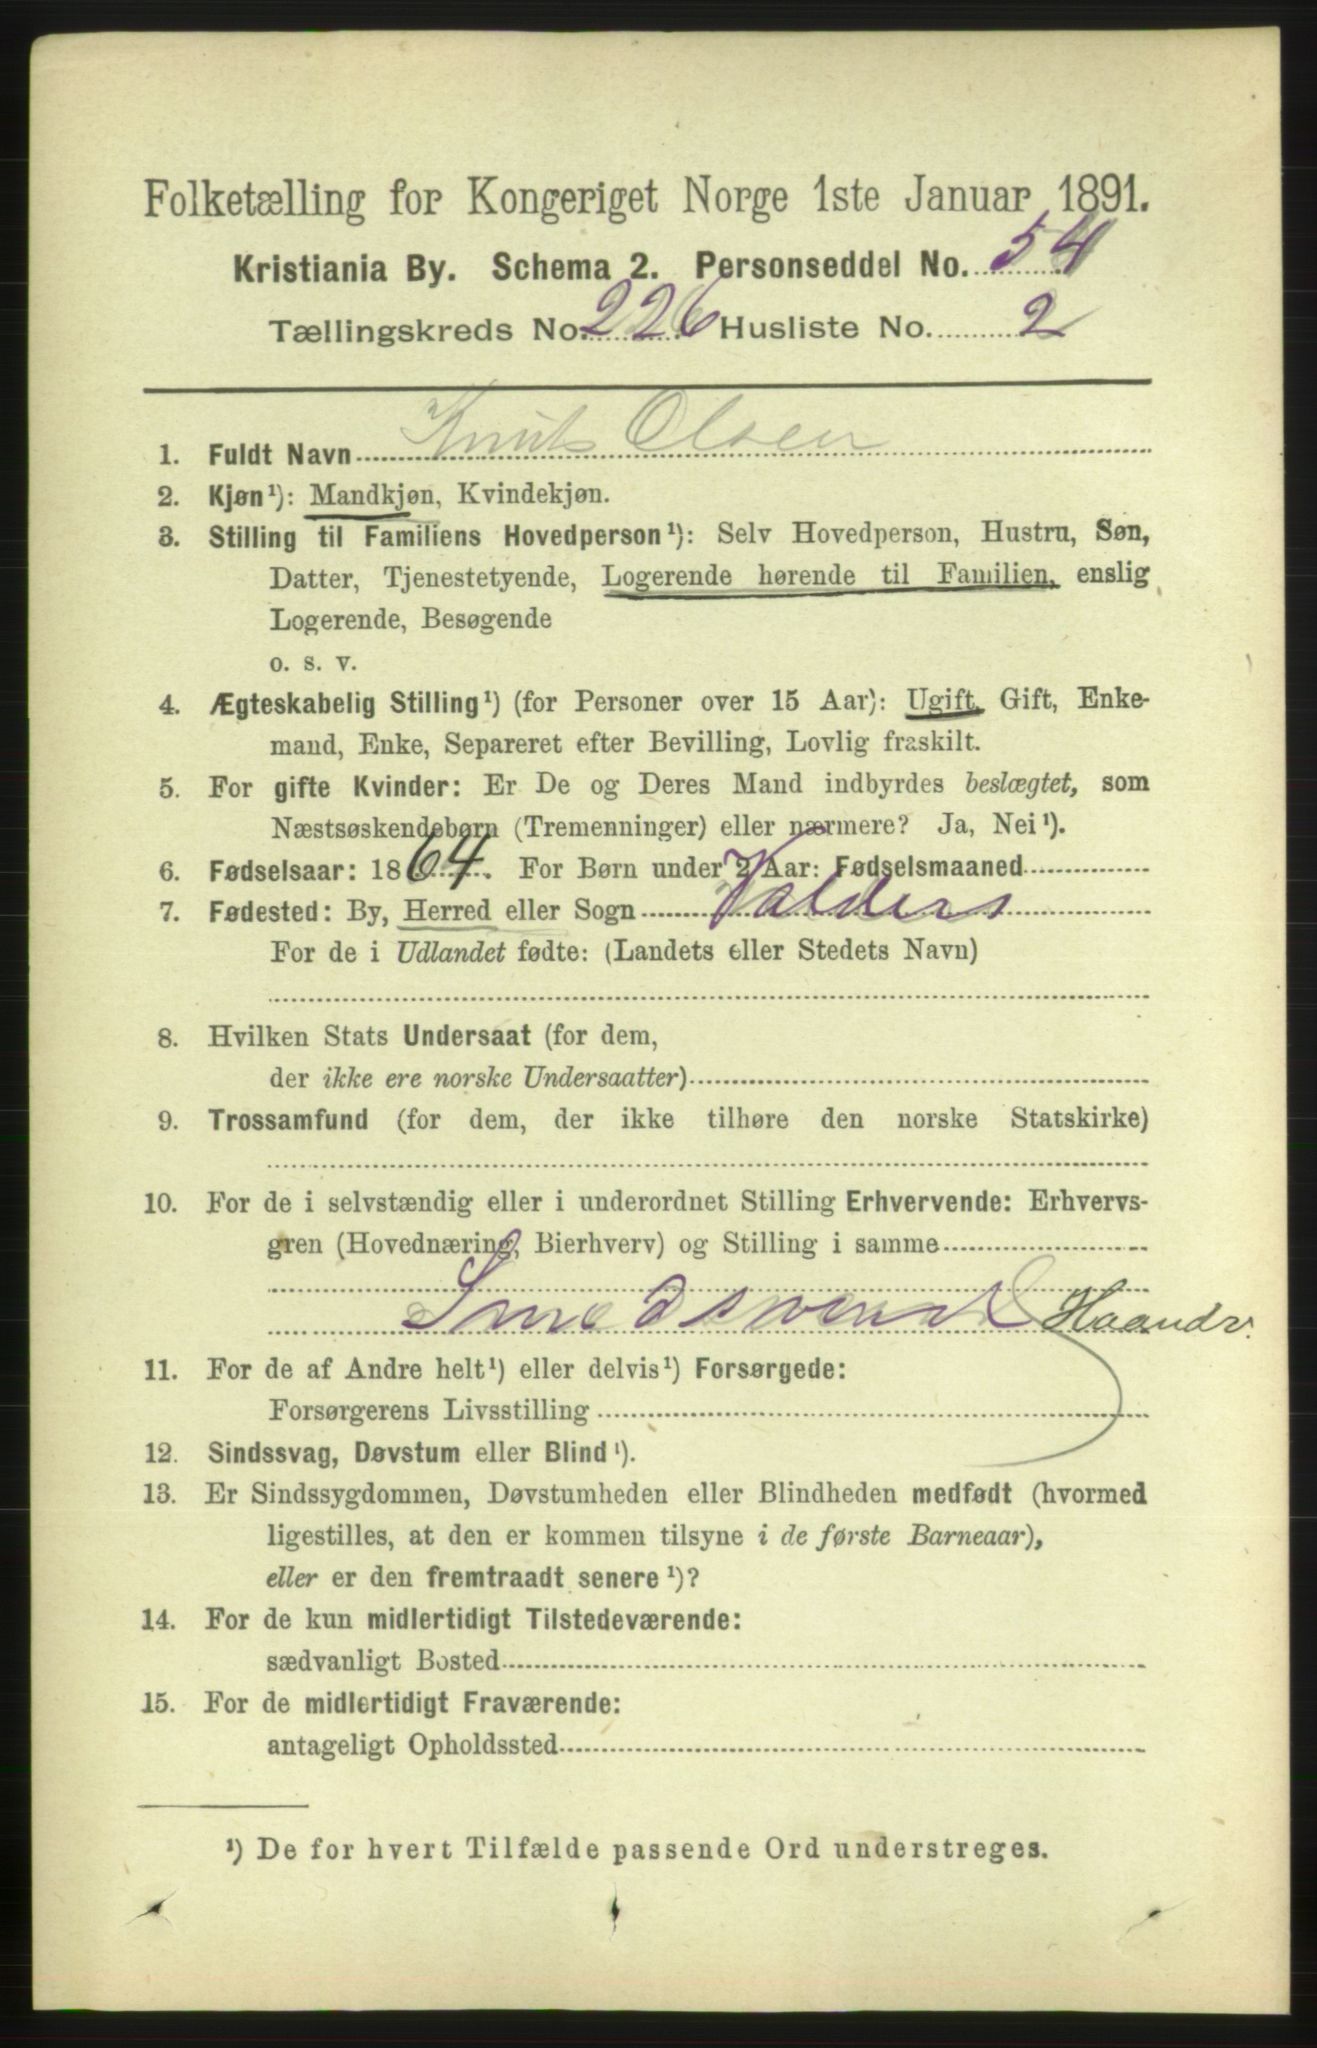 Folketælling for Kongeriget Norge 1ste Januar 1891.
Kristiania By. Schema 2. Personseddel No. 54
Tællingskreds No. 226 Husliste No. 2
1. Fuldt Navn Knut Olsen
2. Kjøn¹): Mandkjøn, Kvindekjøn.
3. Stilling til Familiens Hovedperson¹): Selv Hovedperson, Hustru, Søn,
Datter, Tjenestetyende, Logerende hørende til Familien, enslig
Logerende, Besøgende
o. s. v.
4. Ægteskabelig Stilling¹) (for Personer over 15 Aar): Ugift, Gift, Enke-
mand, Enke, Separeret efter Bevilling, Lovlig fraskilt.
5. For gifte Kvinder: Er De og Deres Mand indbyrdes beslægtet, som
Næstsøskendebørn (Tremenninger) eller nærmere? Ja, Nei¹).
6. Fødselsaar: 1864. For Børn under 2 Aar: Fødselsmaaned
7. Fødested: By, Herred eller Sogn Valders
For de i Udlandet fødte: (Landets eller Stedets Navn)
8. Hvilken Stats Undersaat (for dem,
der ikke ere norske Undersaatter)
9. Trossamfund (for dem, der ikke tilhøre den norske Statskirke)
10. For de i selvstændig eller i underordnet Stilling Erhvervende: Erhvervs-
gren (Hovednæring, Bierhverv) og Stilling i samme
Smedsvend Haandv.
11. For de af Andre helt¹) eller delvis¹) Forsørgede:
Forsørgerens Livsstilling
12. Sindssvag, Døvstum eller Blind¹).
13. Er Sindssygdommen, Døvstumheden eller Blindheden medfødt (hvormed
ligestilles, at den er kommen tilsyne i de første Barneaar),
eller er den fremtraadt senere¹)?
14. For de kun midlertidigt Tilstedeværende:
sædvanligt Bosted
15. For de midlertidigt Fraværende:
antageligt Opholdssted
¹) De for hvert Tilfælde passende Ord understreges.